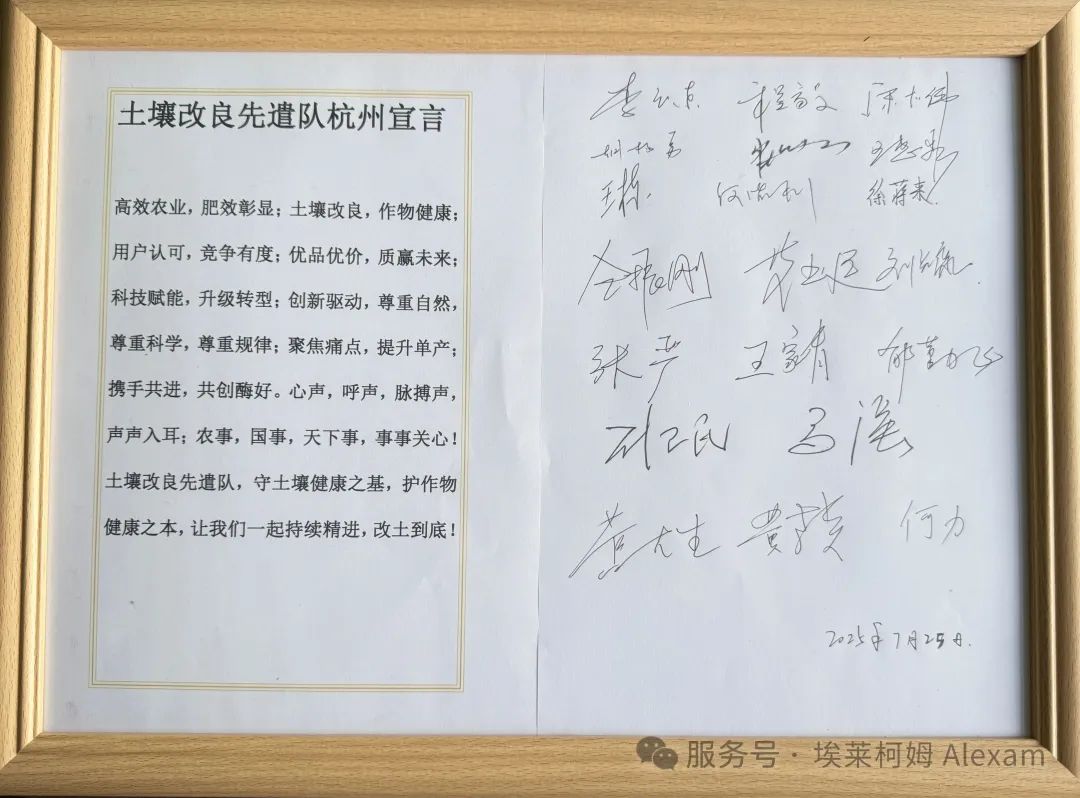 土壤改良先遣队杭州宣言
高效农业，肥效彰显；土壤改良，作物健康；
用户认可，竞争有度；优品优价，质赢未来；
科技赋能，升级转型；创新驱动，尊重自然，
尊重科学，尊重规律；聚焦痛点，提升单产；
携手共进，共创酶好。心声，呼声，脉搏声，
声声入耳；农事，国事，天下事，事事关心！
土壤改良先遣队，守土壤健康之基，护作物
健康之本，让我们一起持续精进，改土到底！
王栋 徐蒋来
全振刚
张严 王家青
马滢
何力
2025年7月25日.
服务号·埃莱柯姆 Alexam